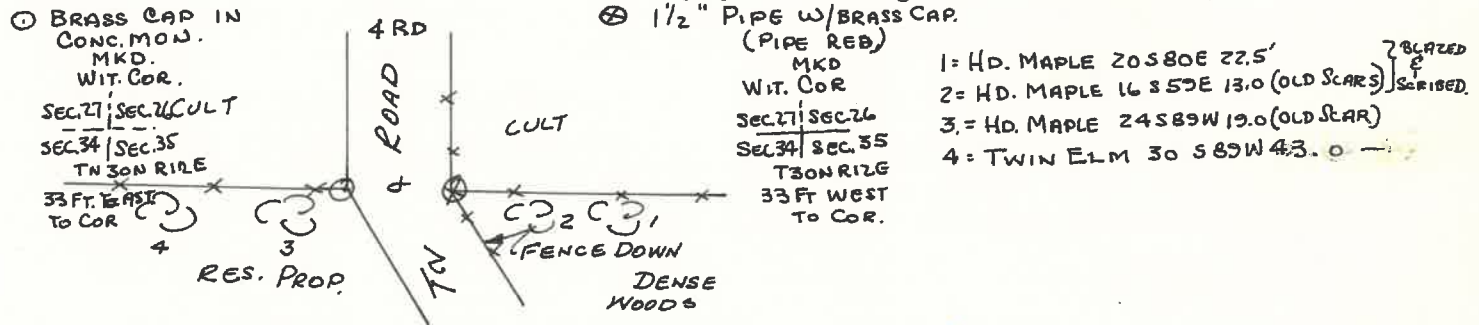 BRASS CAP IN
CONC. MON.
MKD.
WIT. COR.
SEC.27 SEC.26
SEC.34 SEC.35
TN 30N R12E
33 FT. EAST
TO COR
CULT
4 RD
ROAD
TW
CULT
4
3
2
1
RES. PROP.
FENCE DOWN
DENSE
WOODS
1 1/2" PIPE W/BRASS CAP.
(PIPE REB)
MKD
WIT. COR
SEC.27 SEC.26
SEC.34 SEC.35
T30N R12E
33 FT WEST
TO COR.
1= HD. MAPLE 20 S80E 22.5'
2= HD. MAPLE 16 S59E 13.0 (OLD SCARS)
3.= HD. MAPLE 24 S89W 19.0 (OLD SCAR)
4= TWIN ELM 30 S89W 43.0 —
BLAZED
&
SCRIBED.